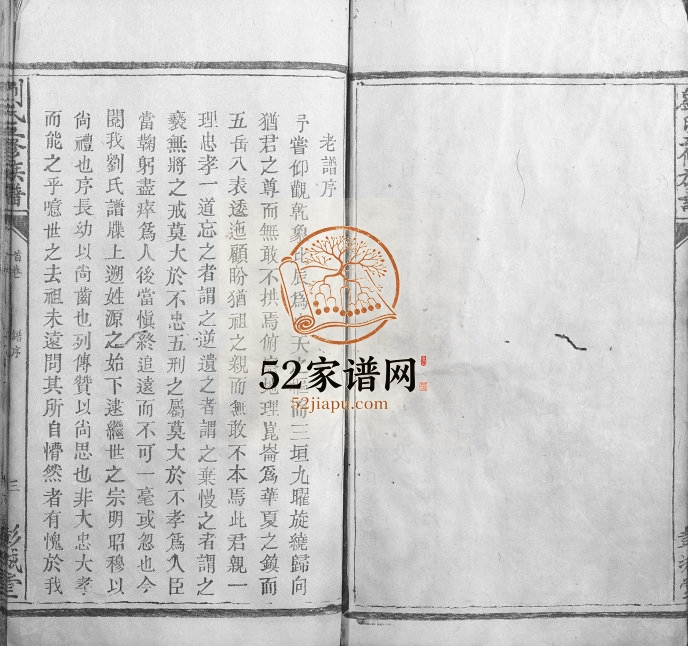 老譜序
予嘗仰觀乾象北辰為天之樞而三垣九曜旋繞歸向
猶君之尊而無敢不拱焉俯察地理崑崙為華夏之鎮而
五岳八表逶迤顧盼猶祖之親而無敢不本焉此君親一
理忠孝一道忘之者謂之逆遺之者謂之棄慢之者謂之
褻無將之戒莫大於不忠五刑之屬莫大於不孝為人臣
當鞠躬盡瘁為人後當愼終追遠而不可一毫或忽也今
閱我劉氏譜牒上遡姓源之始下逮繼世之宗明昭穆以
尙禮也序長幼以尙齒也列傳贊以尙思也非大忠大孝
而能之乎噫世之去祖未遠問其所自懵然者有愧於我
劉氏五修族譜
首卷
譜序
三
彭城堂
52家谱网
52jiapu.com